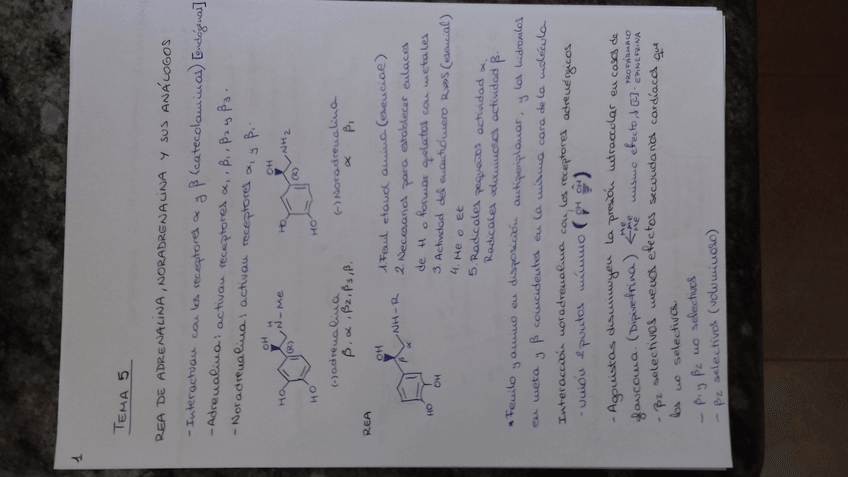 1
TEMA 5
REA DE ADRENALINA, NORADRENALINA Y SUS ANÁLOGOS
- Interactúan con los receptores α y β (catecolaminas) [endógenas]
- Adrenalina: activan receptores α1, β1, β2 y β3.
- Noradrenalina: activan receptores α1 y β1.
HO HO OH (R) H N-Me
HO HO OH (R) NH2
(-)adrenalina
β, α, β2, β3, β1
(-)Noradrenalina
α β1
REA
HO OH OH β α NH-R
1. Fenil etanol amina (esencial)
2. Necesarios para establecer enlaces
de H o formar quelatos con metales
3. Actividad del enantiómero R>>S (esencial)
4. Me o Et
5. Radicales pequeños actividad α,
Radicales voluminosos actividad β.
* Fenilo y amino en disposición antiperiplanar, y los hidroxilos
en meta y β coincidentes en la misma cara de la molécula
Interacción noradrenalina con los receptores adrenérgicos
- unión 2 puntos mínimo (OH OH)
- Agonistas disminuyen la presión intraocular en casos de
glaucoma. (Dipivefrina) Me Me Me mismo efecto, ↓[] - PROFÁRMACO EPINEFRINA
- β2 selectivos menos efectos secundarios cardíacos que
los no selectivos
- β1 y β2 no selectivos
- β2 selectivos (voluminoso)